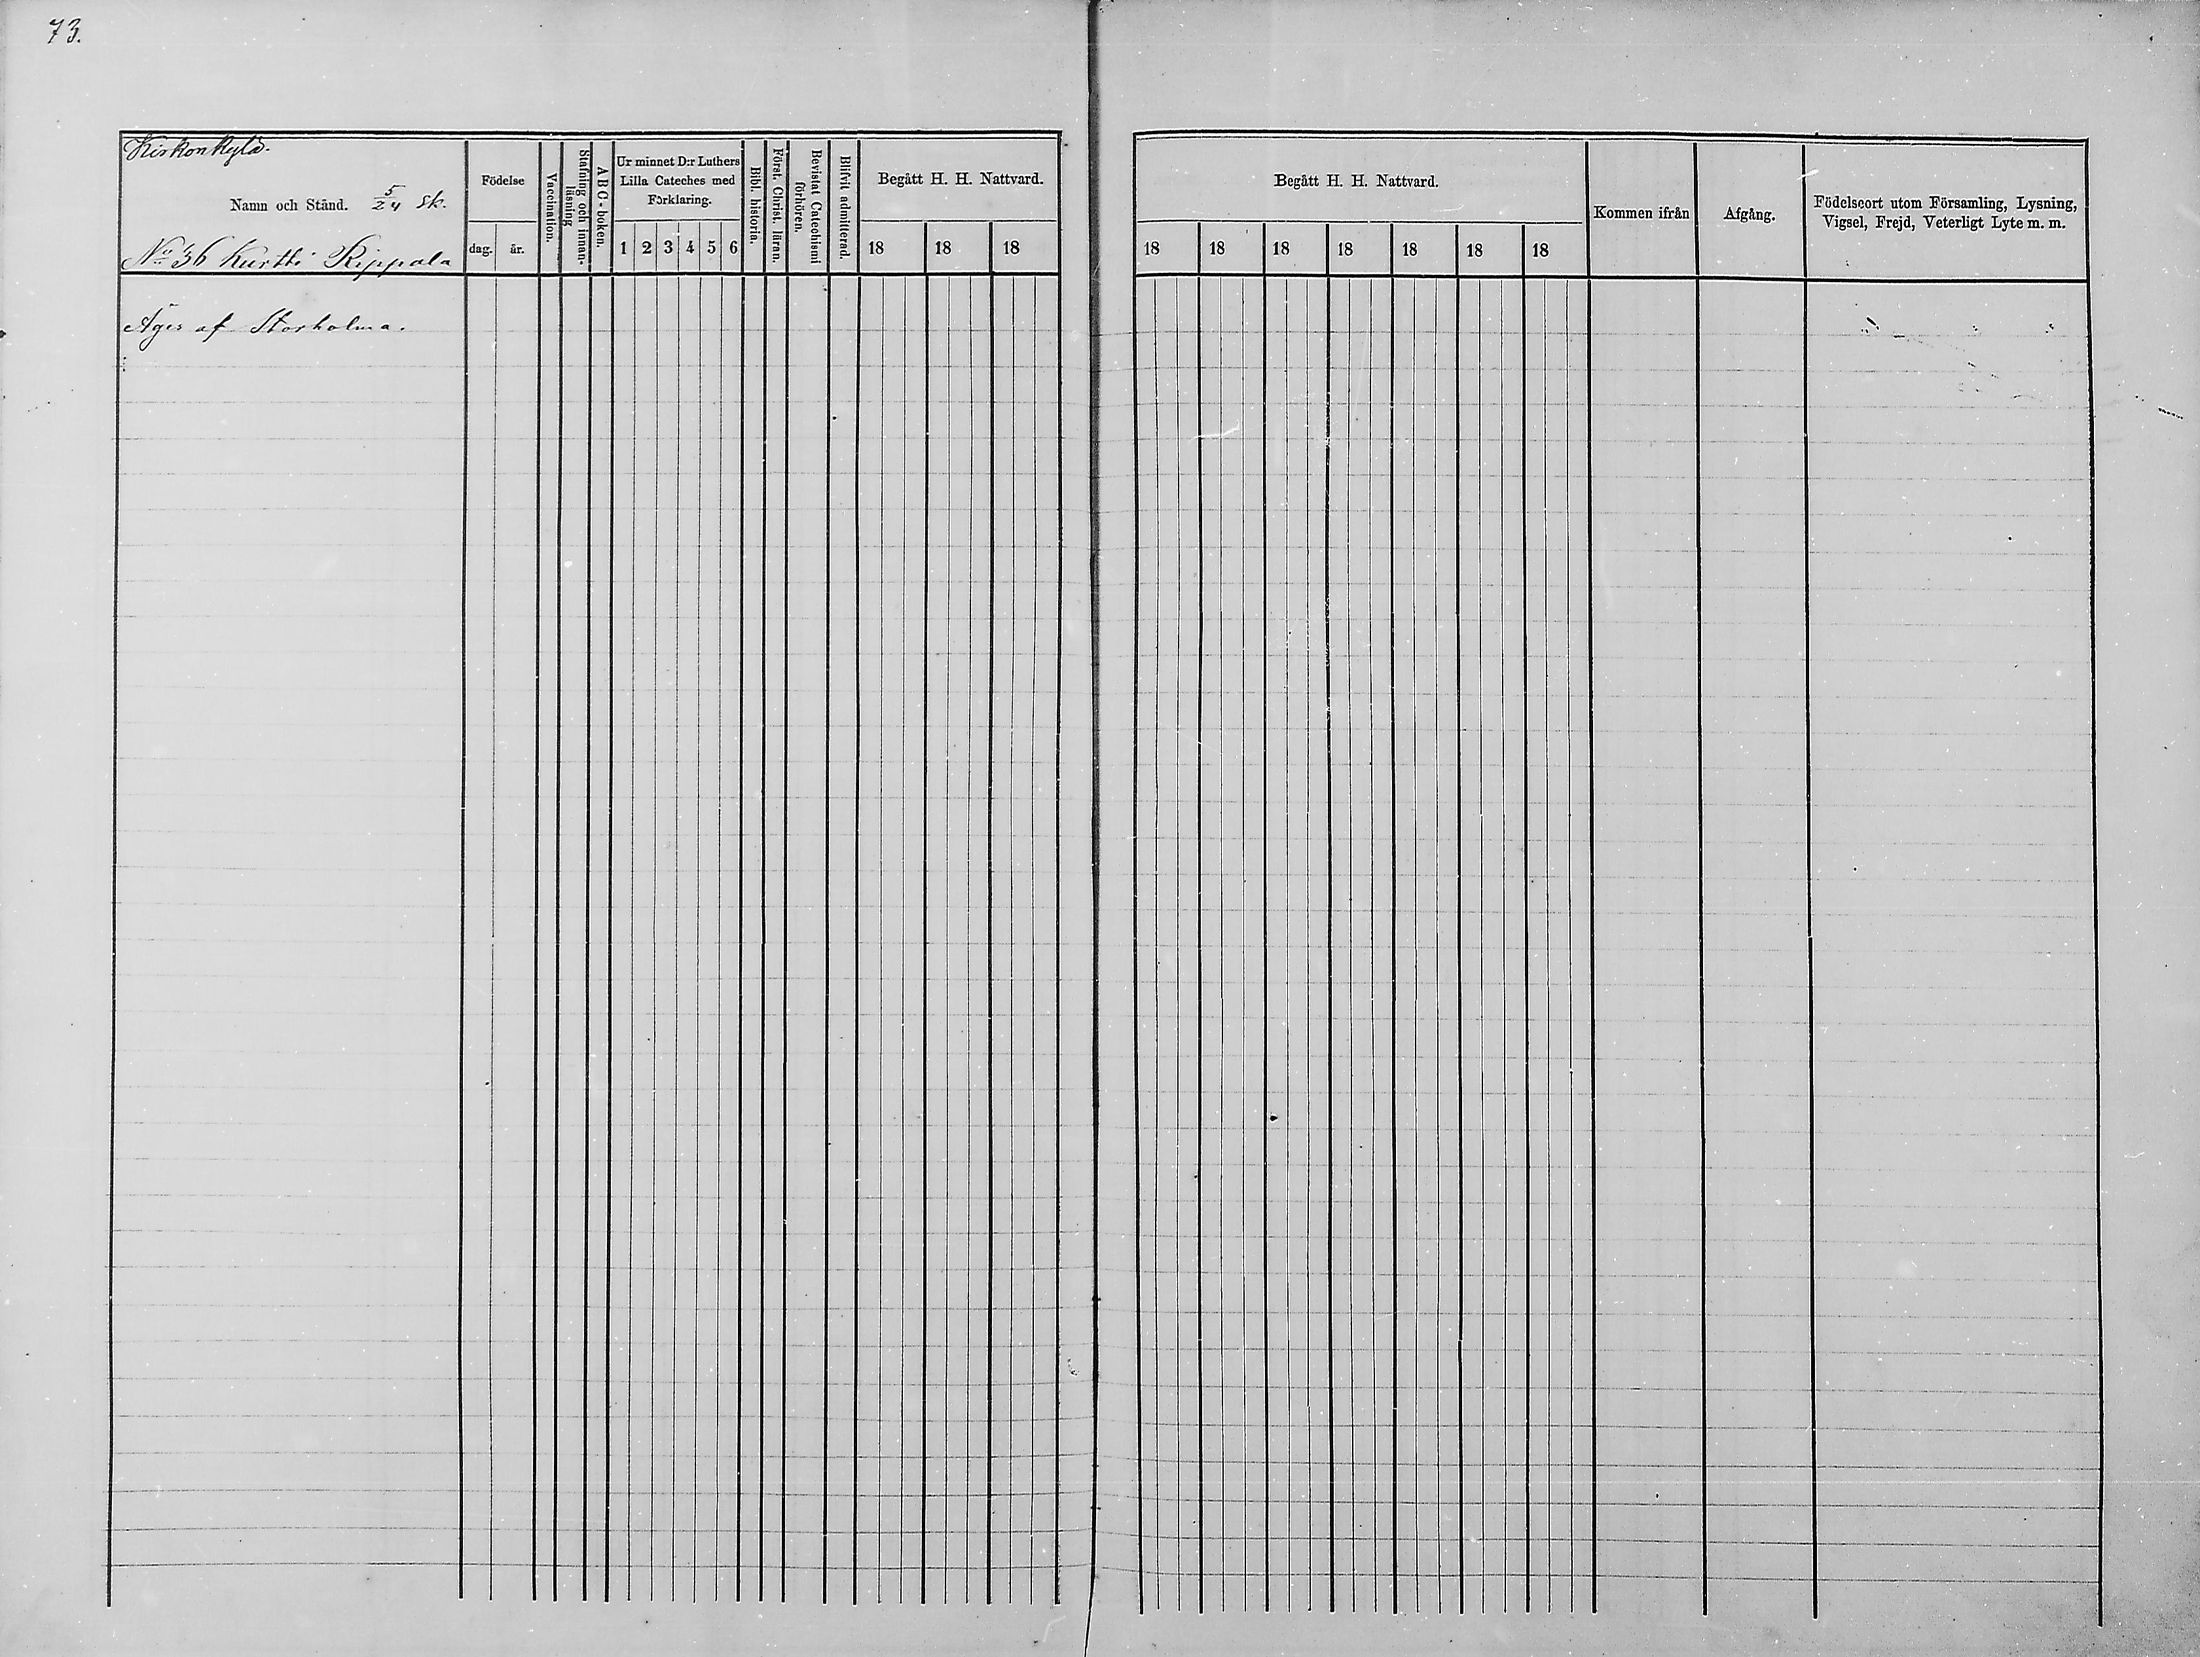 73.
Kirkonkylä.
Namn och Stånd. 5/24 sk.
No 36 Kurtti Rippala
Födelse
dag. år.
Vaccination.
Stafning och innan-
läsning
ABC-boken.
Ur minnet D:r Luthers
Lilla Cateches med
Förklaring.
1 2 3 4 5 6
Bibl. historia.
Först. Christ. läran.
Bevistat Catechismi
förhören.
Blifvit admitterad.
Begått H. H. Nattvard.
18 18 18
Äges af Storholma.
Begått H. H. Nattvard.
18 18 18 18 18 18 18
Kommen ifrån
Afgång.
Födelseort utom Församling, Lysning,
Vigsel, Frejd, Veterligt Lyte m. m.